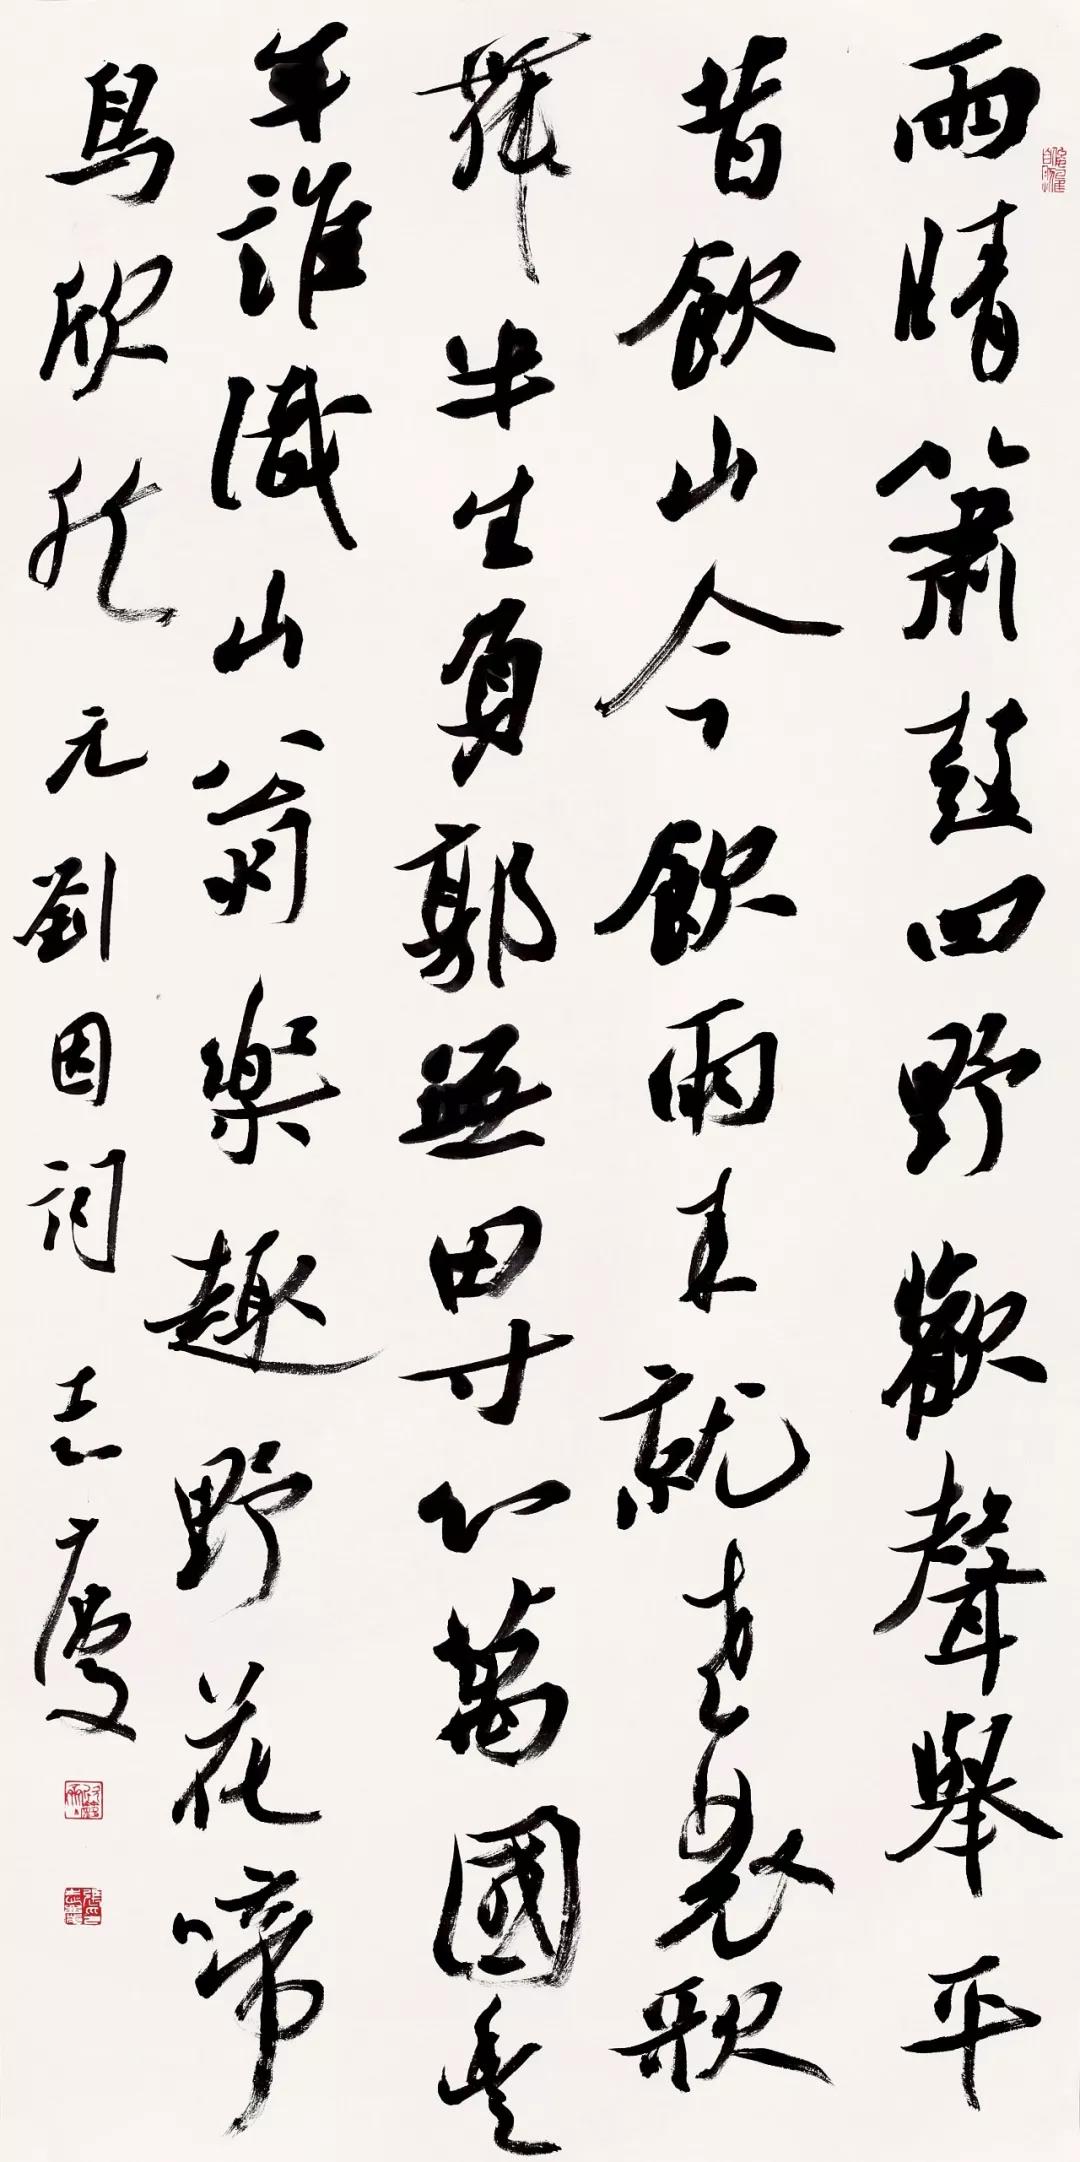 雨晴簫鼓四野歡聲舉平
昔飲山今飲雨來就老農歌
舞半生負郭無田寸心萬國豐
年誰識山翁樂趣野花啼
鳥欣然 元劉因詞 志慶